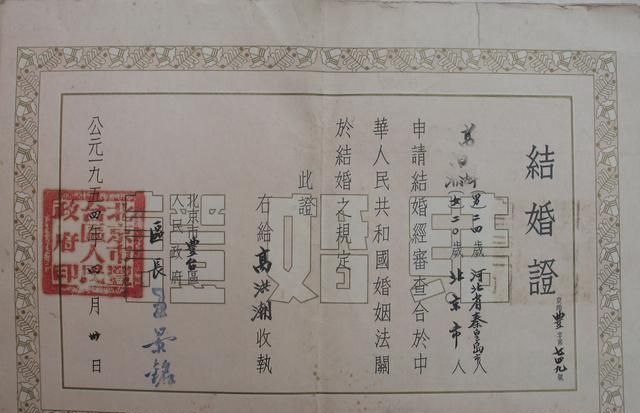 結婚證
京婚豐字第七四九號
(男)二四歲河北省秦皇島市人
(女)二〇歲北京市人
申請結婚經審查合於中
華人民共和國婚姻法關
於結婚之規定
此證
右給高洪潮收執
北京市豐台區
人民政府
區長
王景銘
公元一九五四年四月卅日
北京市豐
台區人民
政府印